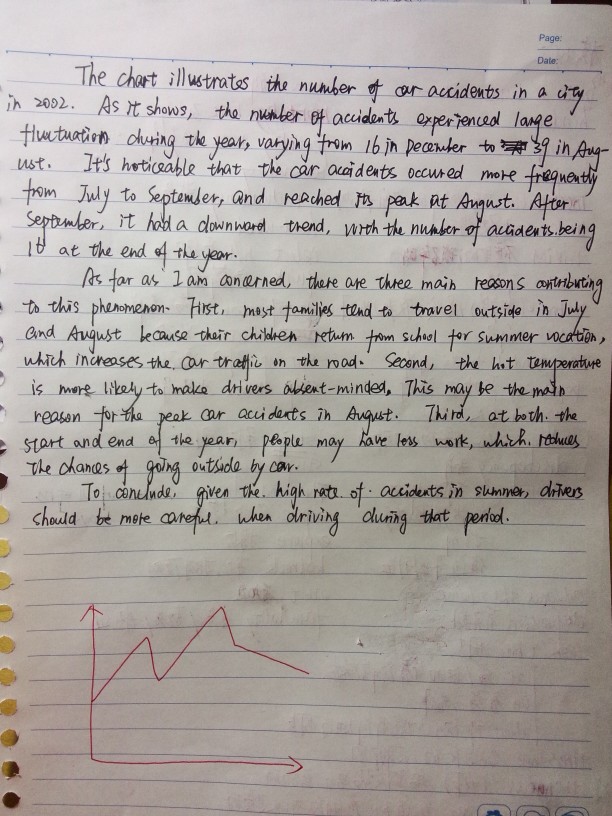 Page:
Date:
The chart illustrates the number of car accidents in a city
in 2002. As it shows, the number of accidents experienced large
fluctuation during the year, varying from 16 in December to 39 in Aug-
ust. It's noticeable that the car accidents occured more frequently
from July to September, and reached its peak at August. After
September, it had a downward trend, with the number of accidents being
16 at the end of the year.
As far as I am concerned, there are three main reasons contributing
to this phenomenon. First, most families tend to travel outside in July
and August because their children return from school for summer vocation,
which increases the car traffic on the road. Second, the hot temperature
is more likely to make drivers absent-minded. This may be the main
reason for the peak car accidents in August. Third, at both the
start and end of the year, people may have less work, which reduces
the chances of going outside by car.
To conclude, given the high rate of accidents in summer, drivers
should be more careful when driving during that period.